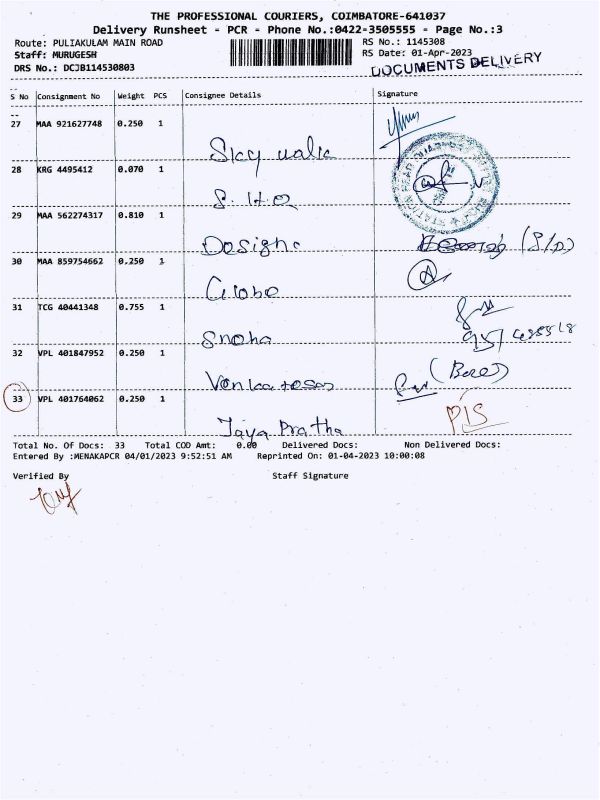 THE PROFESSIONAL COURIERS, COIMBATORE-641037
Delivery Runsheet - PCR - Phone No.:0422-3505555 - Page No.:3
Route: PULIAKULAM MAIN ROAD
RS No.: 1145308
Staff: MURUGESH
RS Date: 01-Apr-2023
DRS No.: DCJB114530803
DOCUMENTS DELIVERY
S No Consignment No Weight PCS Consignee Details Signature
27 MAA 921627748 0.250 1
Sky walk
28 KRG 4495412 0.070 1
S.H.O
29 MAA 562274317 0.810 1
Designe
30 MAA 859754662 0.250 1
Globe
31 TCG 40441348 0.755 1
Sneha
32 VPL 401847952 0.250 1
Venkatesas
33 VPL 401764062 0.250 1
Jaya Pratha
Total No. Of Docs: 33 Total COD Amt: 0.00 Delivered Docs: Non Delivered Docs:
Entered By :MENAKAPCR 04/01/2023 9:52:51 AM Reprinted On: 01-04-2023 10:00:08
Verified By Staff Signature